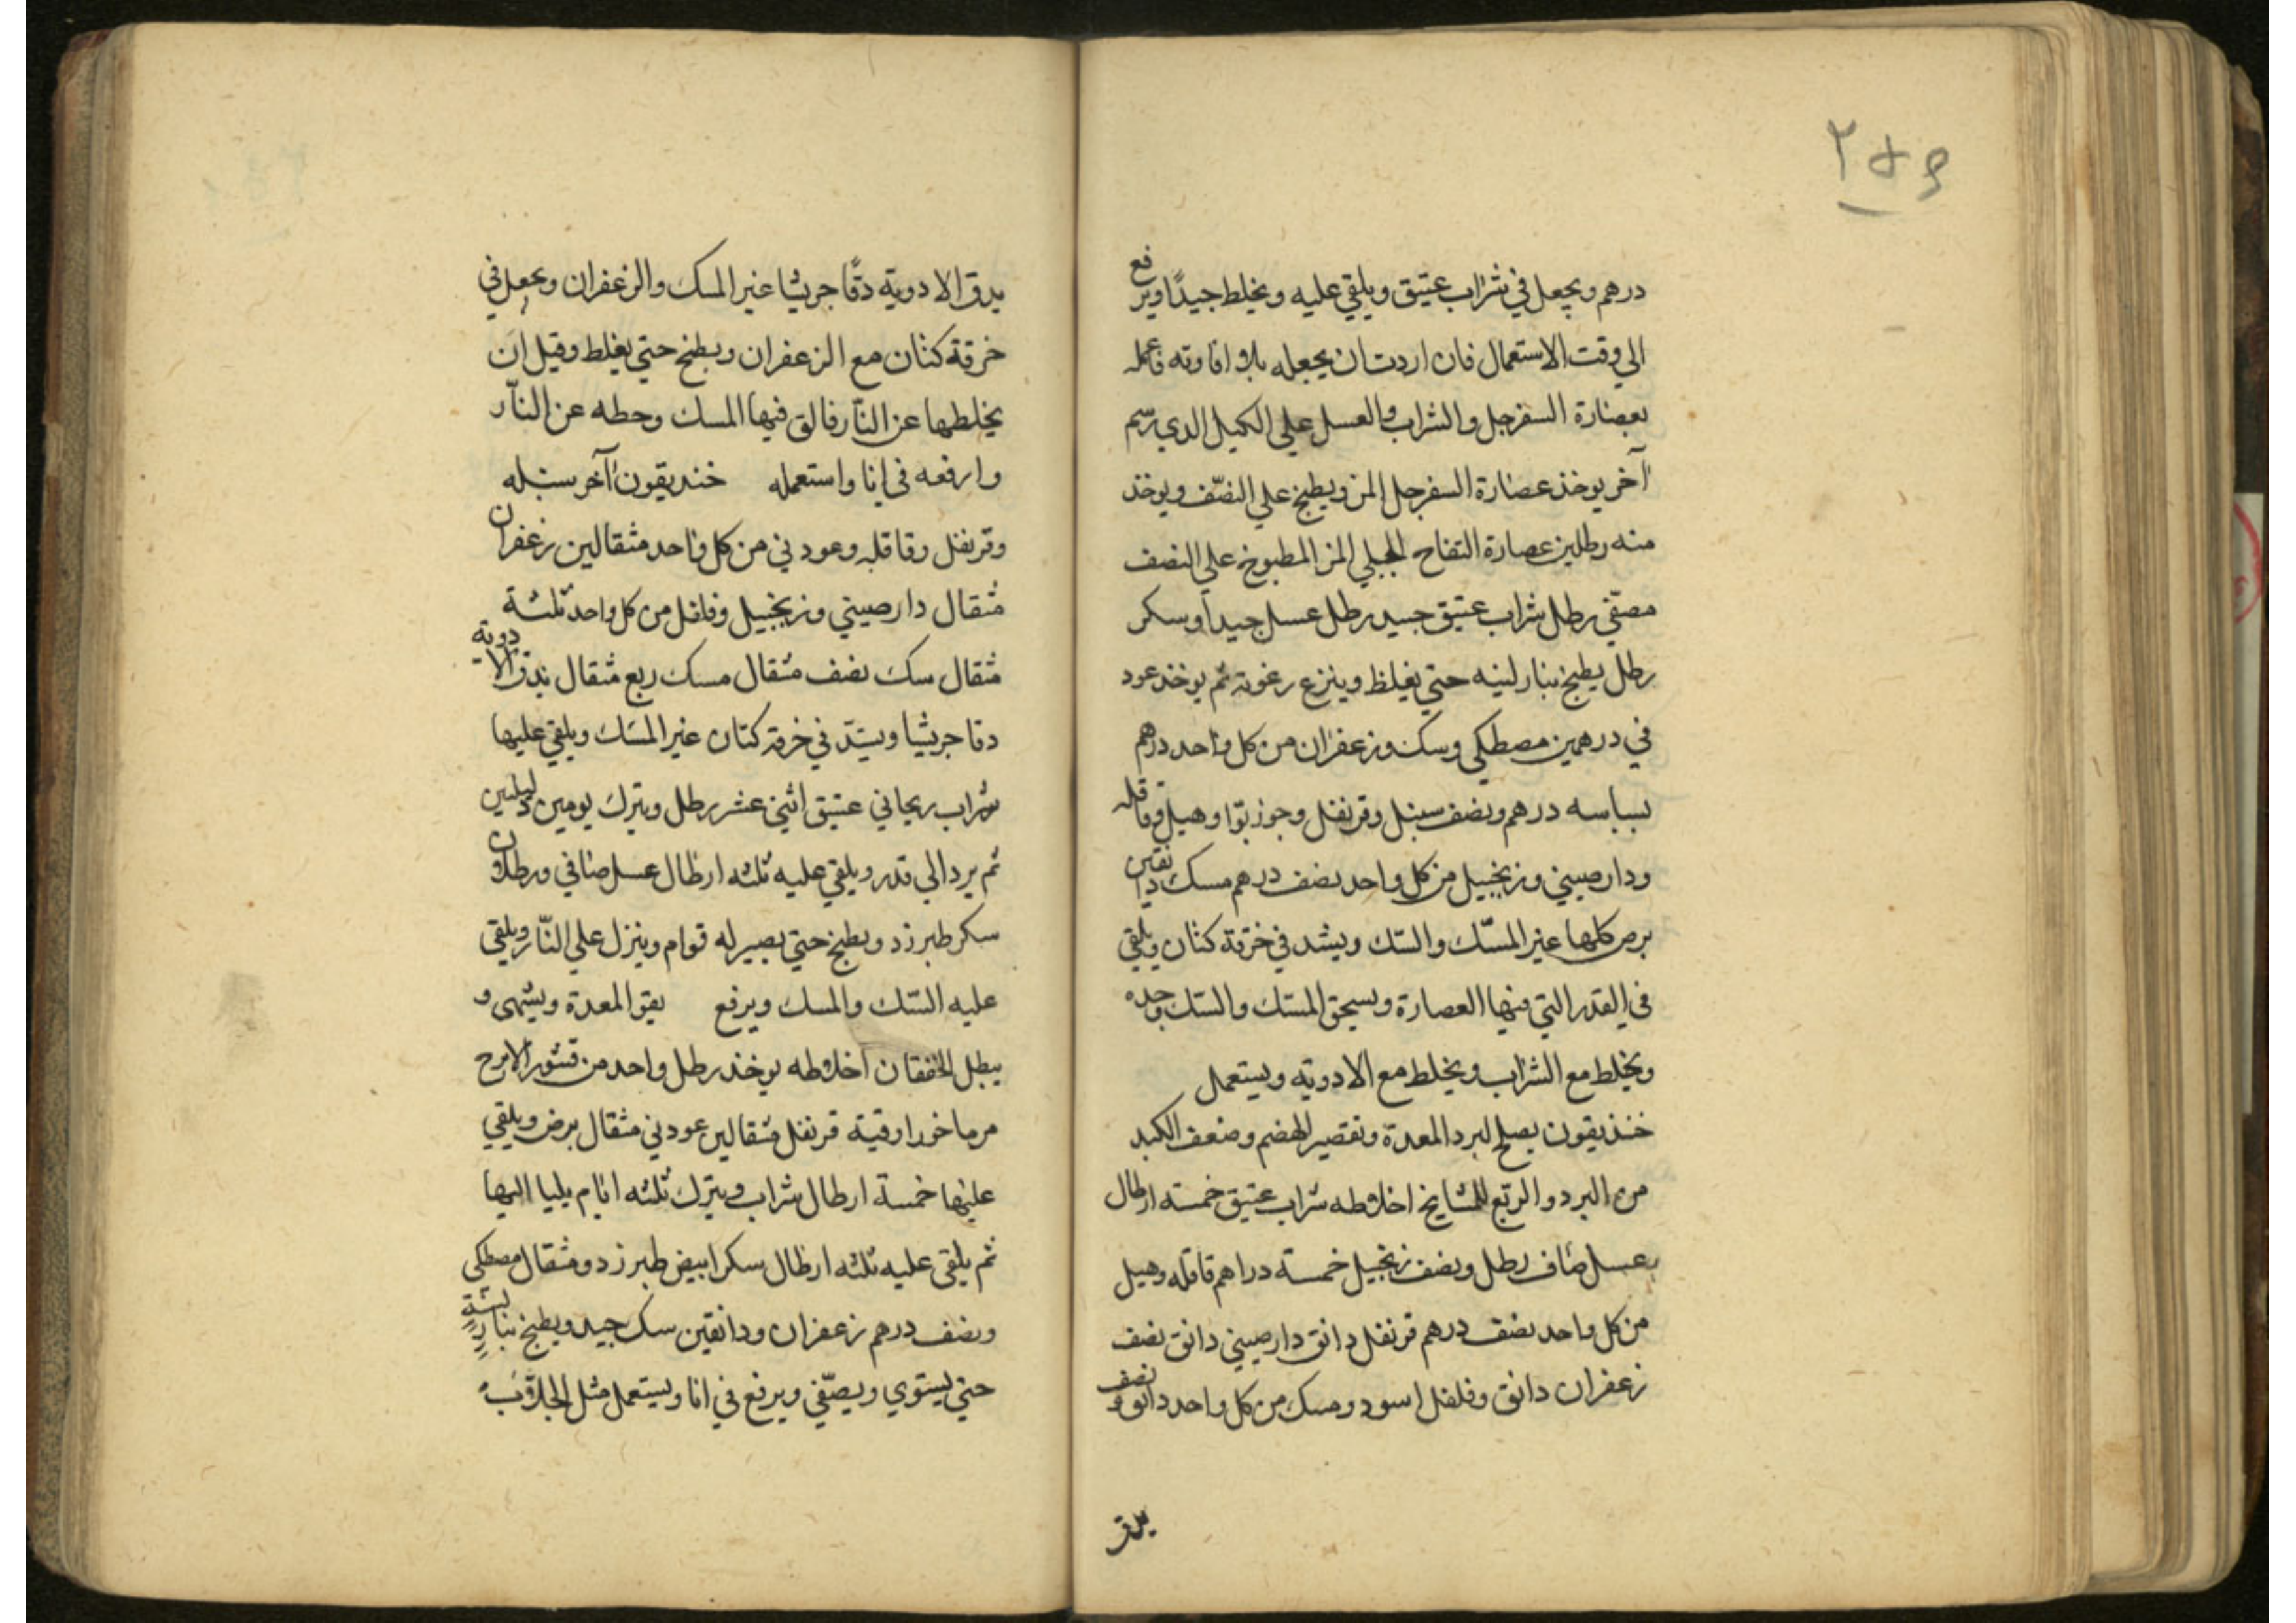 ٢٥٩
درهم ويجعل في شراب عتيق ويلقي عليه ويخلط جيدًا ويرفع
الي وقت الاستعمال فان اردت ان يجعله بلا افاوته فاعمله
بعصارة السفرجل والشراب والعسل علي الكيل الدي رسم
آخر يوخذ عصارة السفرجل المز ويطبخ علي النصّف ويوخذ
منه رطلين عصارة التفاح الجبلي المز المطبوخ علي النصف
مصفّي رطل شراب عتيق جيد رطل عسل جيد او سكر
رطل يطبخ بنار لينه حتي يغلظ وينزع رغوته ثم يوخذ عود
ني درهمين مصطكي وسك وزعفران من كل واحد درهم
بسباسه درهم ونصف سنبل وقرنفل وجوزبوّا وهيل وقاقله
ودارصيني وزنجبيل من كل واحد نصف درهم مسك دانقين
يرض كلها غير المسّك والسّك ويشد في خرقة كتان ويلقي
في القدر التي فيها العصارة ويسحق المسّك والسّك وحده
ويخلط مع الشراب ويخلط مع الادوية ويستعمل
خنديقون يصلح لبرد المعدة وتقصير الهضم وضعف الكبد
من البرد والربّع للمشايخ اخلاطه شراب عتيق خمسة ارطال
عسل صاف رطل ونصف زنجبيل خمسة دراهم قاقله وهيل
من كل واحد نصف درهم قرنفل دانق دارصيني دانق نصف
زعفران دانق وفلفل اسود ومسك من كل واحد دانق ونصف
يدق
يدق الادوية دقًّا جريشا غير المسك والزعفران وتجعل في
خرقة كتان مع الزعفران ويطبخ حتي يغلظ وقيل ان
يخلطها عن النّار فالق فيها المسك وحطه عن النّار
وارفعه في انا واستعمله خنديقون آخر سنبله
وقرنفل وقاقله وعود ني من كل واحد مثقالين زعفران
مثقال دارصيني وزنجبيل وفلفل من كل واحد ثلثة
مثقال سك نصف مثقال مسك ربع مثقال يدق الادوية
دقا جريشا ويشدّ في خرقة كتان غير المسك ويلقي عليها
شراب ريحاني عتيق اثني عشر رطل ويترك يومين وليلتين
ثم يرد الي قدر ويلقي عليه ثلثه ارطال عسل صافي ورطلان
سكر طبرزد ويطبخ حتي يصير له قوام وينزل علي النّار ويلقي
عليه السّك والمسك ويرفع يقو المعدة ويشهى و
يبطل الخفقان اخلاطه يوخذ رطل واحد من قشور الاترج
مرماخور اوقية قرنفل مثقالين عود ني مثقال يرض ويلقي
عليها خمسة ارطال شراب ويترك ثلثه ايام بليا اليها
ثم يلقى عليه ثلثه ارطال سكر ابيض طبرزد ومثقال مصطكي
ونصف درهم زعفران ودانقين سك جيد ويطبخ بنار لينة
حتي يستوي ويصفّي ويرفع في انا ويستعمل مثل الجلاّب